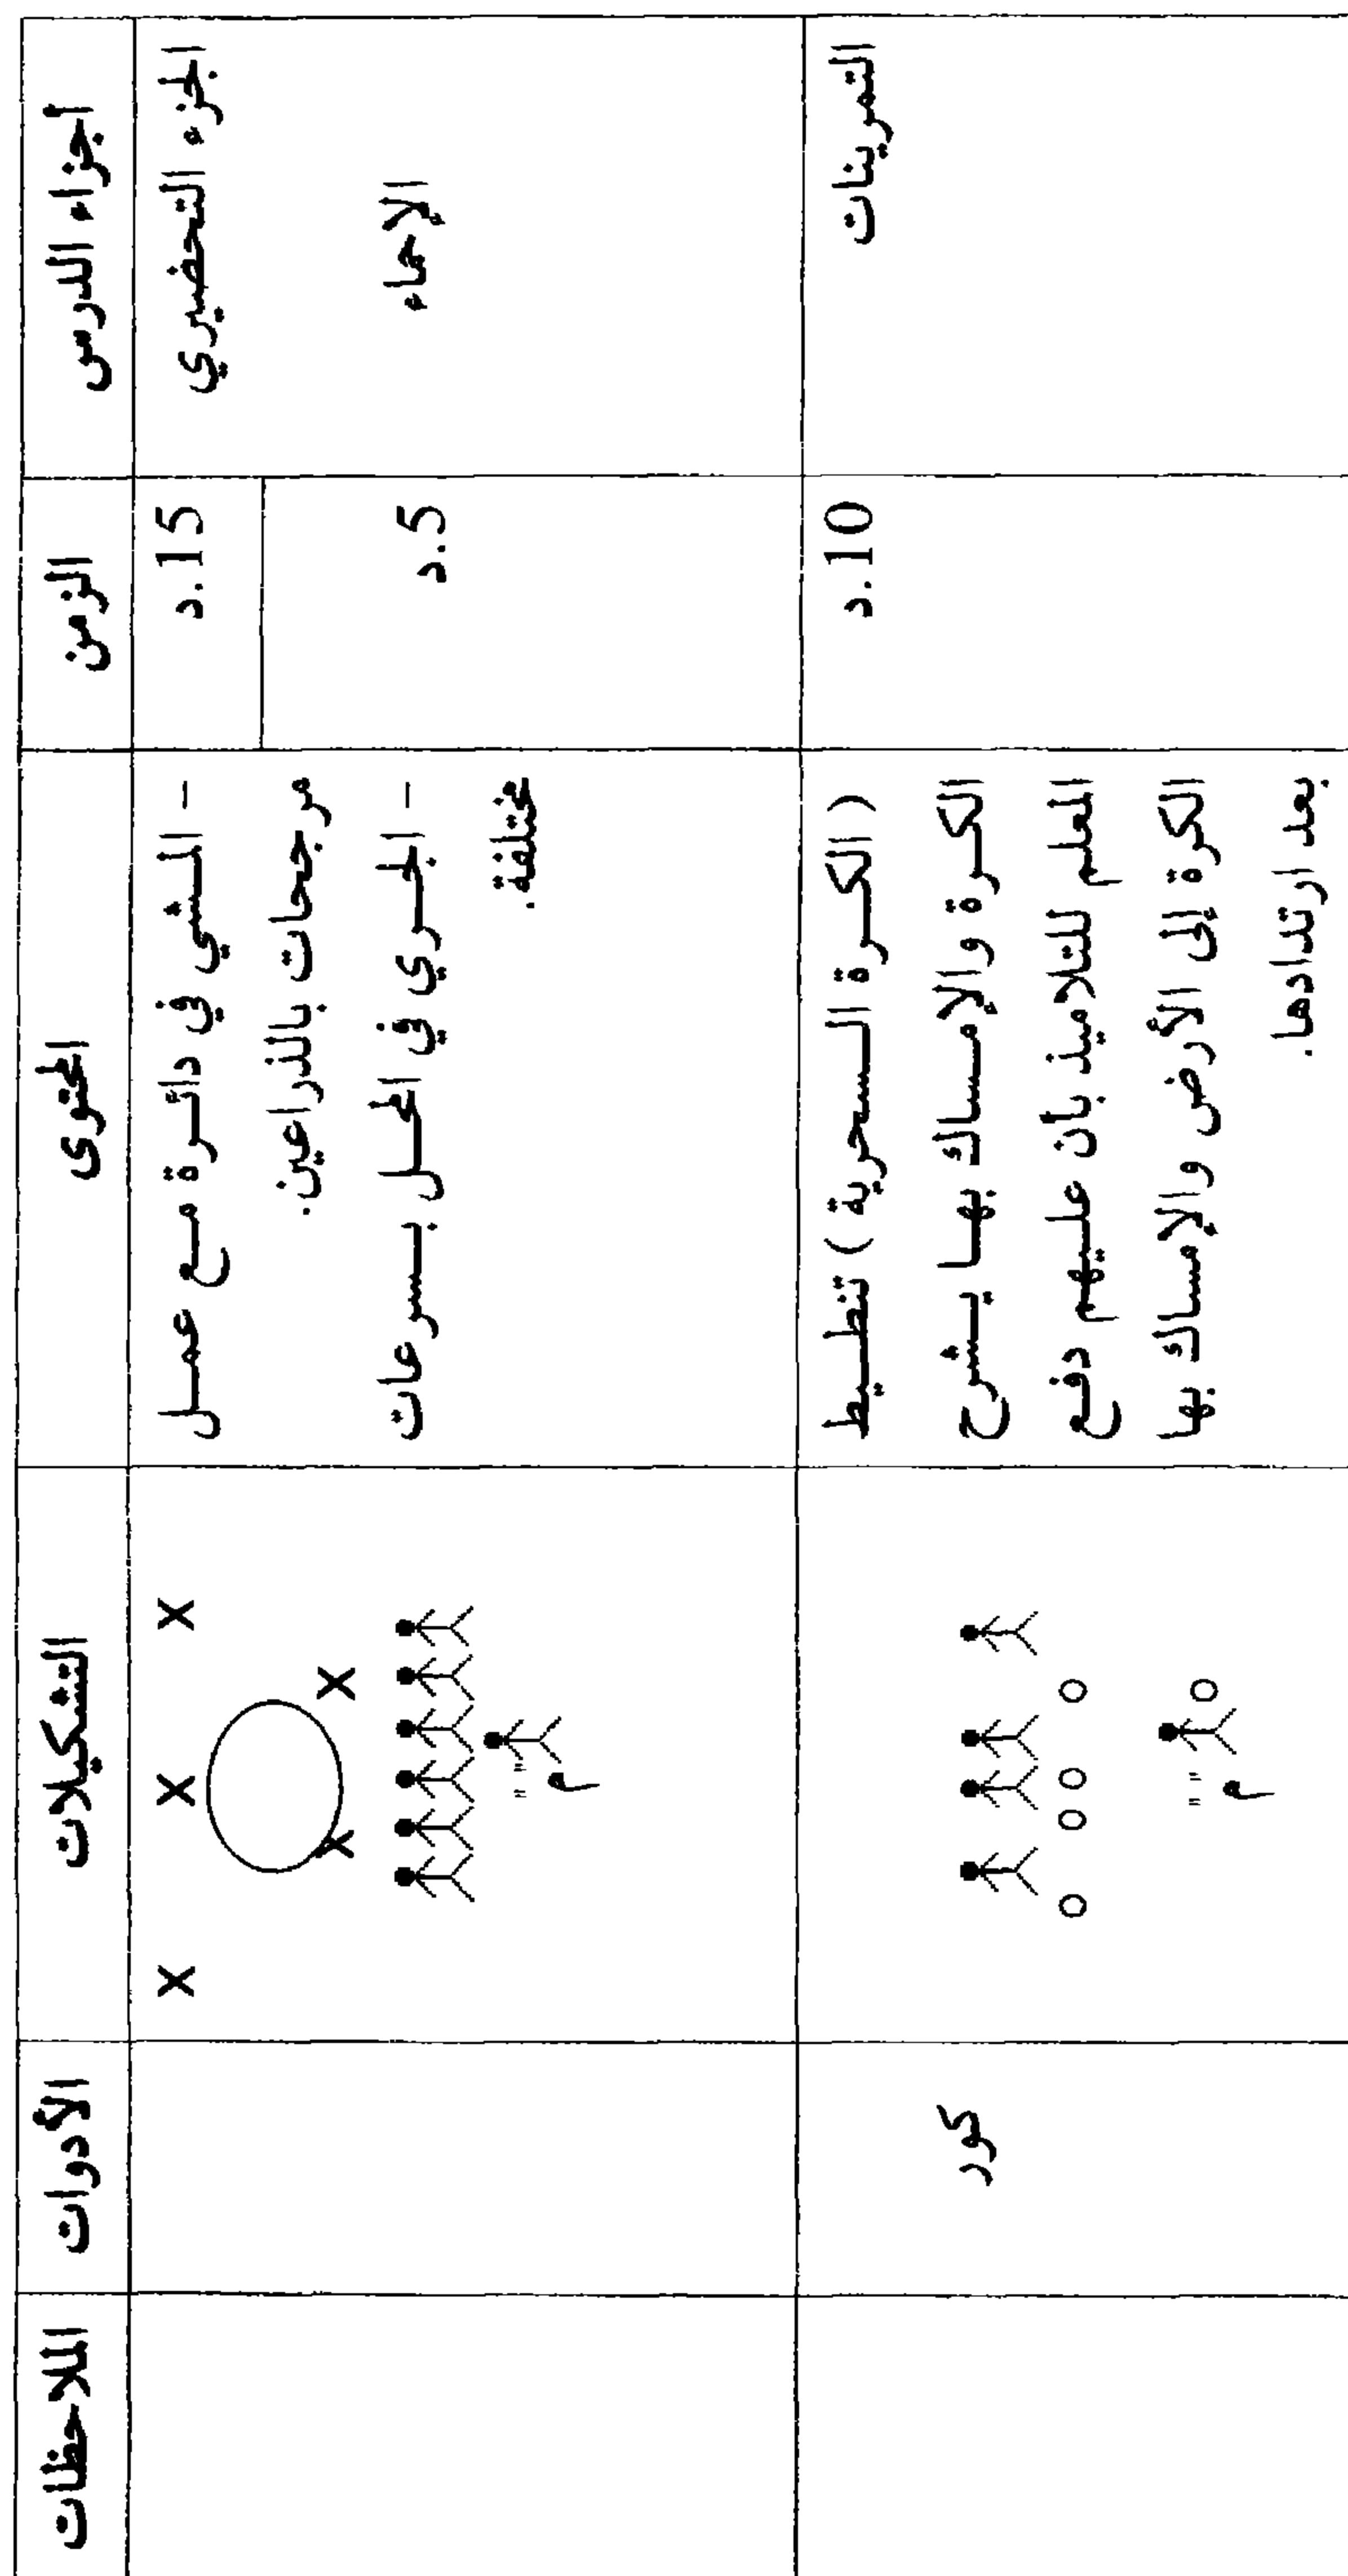 أجزاء الدرس	الزمن	المحتوى	التشكيلات	الأدوات	الملاحظات
الجزء التحضيري	15.د	- المشي في دائرة مع عمل
مرجحات بالذراعين.	X X X X X
الإحماء	5.د	- الجري في المحل بسرعات
مختلفة.	" "
م
التمرينات	10.د	( الكرة السحرية ) تنطيط
الكرة والإمساك بها يشرح	كور
المعلم للتلاميذ بأن عليهم دفع
الكرة إلى الأرض والإمساك بها	" "
م
بعد ارتدادها.